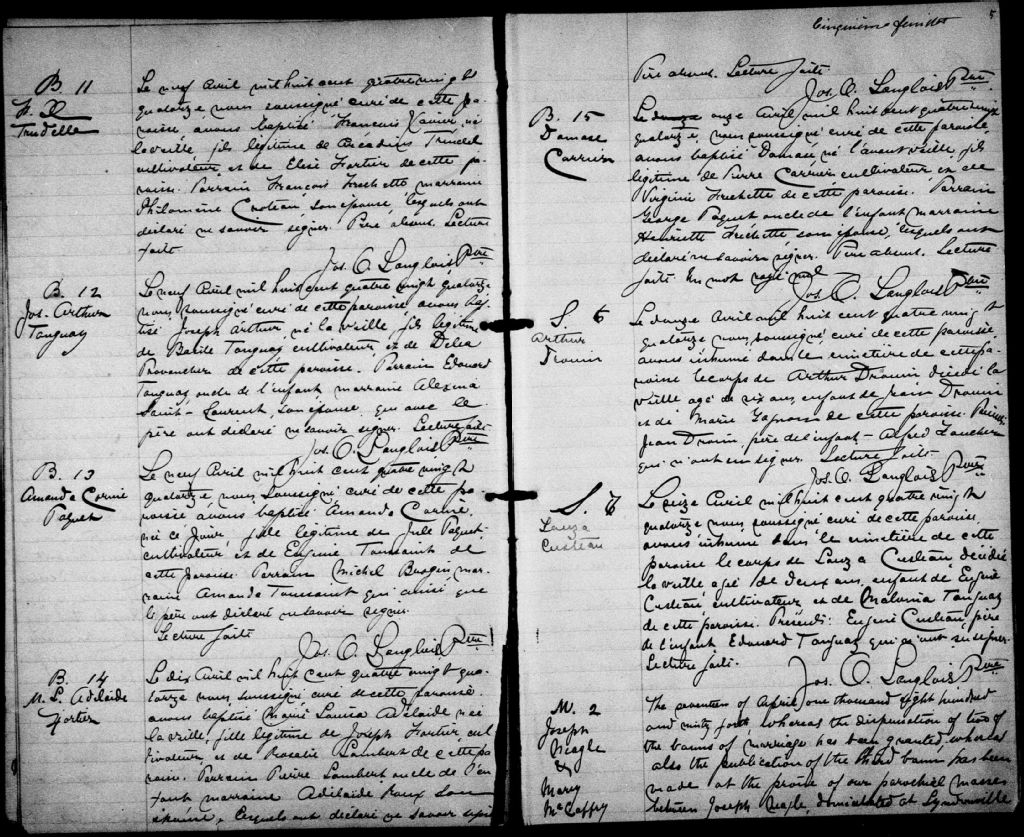 B. 11
F. X
Trudelle
Le neuf Avril mil huit cent quatre vingt
quatorze, nous soussigné curé de cette pa-
roisse, avons baptisé François Xavier, né
la veille, fils légitime de Arcadius Trudel
cultivateur, et de Elise Fortier de cette pa-
roisse. Parrain François Frechette marraine
Philomène Croteau, son épouse, lesquels ont
déclaré ne savoir signer. Père absent. Lecture
faite
Jos. O. Langlois Ptre
B. 12
Jos. Arthur
Tanguay
Le neuf Avril mil huit cent quatre vingt quatorze
nous soussigné curé de cette paroisse avons bap-
tisé Joseph Arthur, né la veille, fils légitime
de Basile Tanguay cultivateur, et de Délia
Provencher de cette paroisse. Parrain Edouard
Tanguay oncle de l'enfant marraine Alexina
Saint-Laurent, son épouse, qui avec le
père ont déclaré ne savoir signer. Lecture faite
Jos. O. Langlois Ptre
B. 13
Amanda Corine
Paquet
Le neuf Avril mil huit cent quatre vingt
quatorze nous, soussigné curé de cette pa-
roisse avons baptisé Amanda Corine,
née ce jour, fille légitime de Jule Paquet,
cultivateur et de Eugenie Toussaint de
cette paroisse. Parrain Michel mar-
raine Amanda Toussaint qui ainsi que
le père ont déclaré ne savoir signer.
Lecture faite
Jos. O. Langlois Ptre
B. 14
M. L. Adelaide
Fortier
Le dix Avril mil huit cent quatre vingt qua-
torze nous, soussigné curé de cette paroisse
avons baptisé Marie Louisa Adelaide née
la veille, fille légitime de Joseph Fortier, cul
tivateur, et de Rosalie Lambert de cette pa
roisse. Parrain Pierre Lambert oncle de l'en
fant marraine Adelaide Roux son
épouse, lesquels ont déclaré ne savoir signer
Cinquième feuillet
5
Père absent. Lecture faite
Jos. O. Langlois Ptre
B. 15
Damase
Carrier
Le onze Avril, mil huit cent quatre vingt
quatorze, nous soussigné curé de cette paroisse
avons baptisé Damase né l'avant veille, fils
légitime de Pierre Carrier cultivateur et de
Virginie Frechette de cette paroisse. Parrain
George Paquet oncle de l'enfant marraine
Henriette Fréchette son épouse, lesquels ont
déclaré ne savoir signer. Père absent. Lecture
faite. Un mot rayé nul
Jos. O. Langlois Ptre
S. 6
Arthur
Drouin
Le douze Avril mil huit cent quatre vingt
quatorze nous, soussigné curé de cette paroisse
avons inhumé dans le cimetière de cette pa-
roisse le corps de Arthur Drouin décédé la
veille agé de six ans, enfant de Jean Drouin
et de Marie Gagnon de cette paroisse. Présents:
Jean Drouin, père de l'enfant - Alfred
qui n'ont su signer. Lecture faite.
Jos. O. Langlois Ptre
S. 7
Louza
Custeau
Le seize Avril mil huit cent quatre vingt
quatorze nous, soussigné curé de cette paroisse,
avons inhumé dans le cimetière de cette
paroisse le corps de Louza Custeau décédée
la veille agée de deux ans, enfant de Eugène
Custeau cultivateur, et de Malvina Tanguay
de cette paroisse. Présents: Eugène Custeau, père
de l'enfant, Edouard Tanguay qui n'ont su signer.
Lecture faite.
Jos. O. Langlois Ptre
M. 2
Joseph
Neagle
&
Mary
McCaffry
The seventeen of April, one thousand eight hundred
and ninty four, whereas the dispensation of two of
the banns of marriage has been granted, whereas
also the publication of the third bann has been
made at the prone of our parochial masses
between Joseph Neagle, domiciliated at Lyndonville